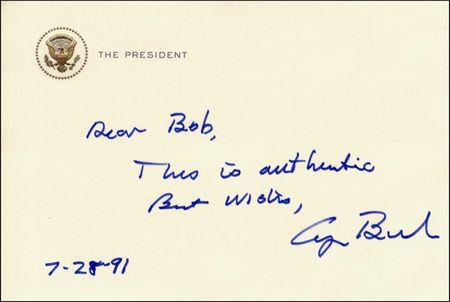 THE PRESIDENT
Dear Bob,
This is authentic
Best Wishes,
G Bush
7-28-91